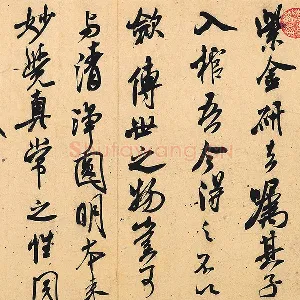 紫金研去嘱其子
入棺吾今得之不以
敛傳世之物豈可
与清淨圓明本来
妙覺真常之性同